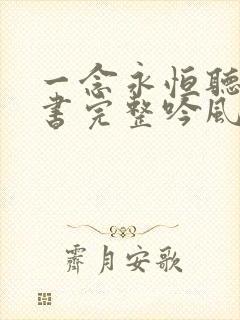 一念永恒聽
書完整吟風
霽月安歌